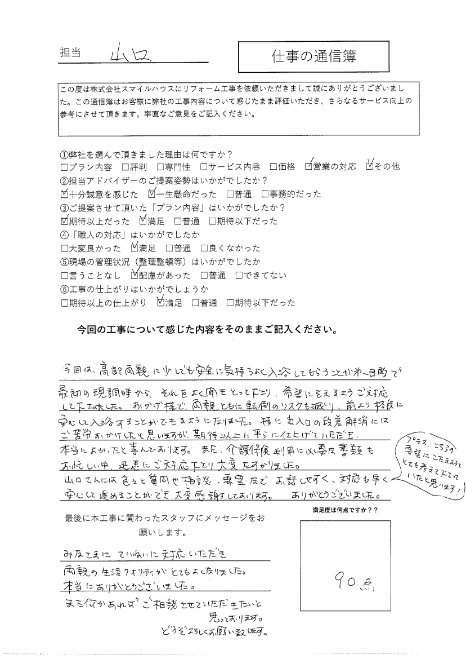 担当 山口
仕事の通信簿
この度は株式会社スマイルハウスにリフォーム工事を依頼いただきまして誠にありがとうございまし
た。この通信簿はお客様に弊社の工事内容について感じたまま評価いただき、さらなるサービス向上の
参考にさせて頂きます。率直なご意見をご記入ください。
①弊社を選んで頂きました理由は何ですか?
□プラン内容 □評判 □専門性 □サービス内容 □価格 ☑営業の対応 ☑その他
②担当アドバイザーのご提案姿勢はいかがでしたか?
☑十分誠意を感じた ☑一生懸命だった □普通 □事務的だった
③ご提案させて頂いた「プラン内容」はいかがでしたか?
☑期待以上だった ☑満足 □普通 □期待以下だった
④「職人の対応」はいかがでしたか
□大変良かった ☑満足 □普通 □良くなかった
⑤現場の管理状況(整理整頓等)はいかがでしたか
□言うことなし ☑配慮があった □普通 □できてない
⑥工事の仕上がりはいかがでしょうか
□期待以上の仕上がり ☑満足 □普通 □期待以下だった
今回の工事について感じた内容をそのままご記入ください。
今回は、高齢両親に少しでも安全に気持ちよく入浴してもらうことが第一目的で
最初の現調時から、それをよく聞きとって下さり、希望に応えるようご対応
して下さいました。おかげ様で、両親ともに転倒のリスクも減り、前より格段に
安心して入浴することができるようになりました。特に出入口の段差解消には
ご苦労おかけしたと思いますが、期待以上に平らに仕上げていただき
本当によかったと喜んでおります。また、介護保険利用に必要な書類も
お忙しい中、迅速にご対応下さり大変助かりました。
山口さんには色々と質問や相談、要望など お話しやすく、対応も早く
安心して進めることができ 大変感謝しております。 ありがとうございました。
プラス、こちらの
希望にこたえられる
とても考えて下さって
いたと思います!
最後に本工事に関わったスタッフにメッセージをお
願いします。
みなさまに ていねいに対応いただき
両親の生活クオリティが とてもよくなりました。
本当にありがとうございました。
また何かあれば ご相談させていただきたいと
思っております。
どうぞよろしくお願い致します。
満足度は何点ですか??
90点